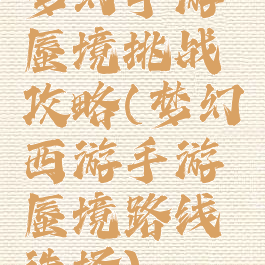 梦幻手游
蜃境挑战
攻略(梦幻
西游手游
蜃境路线
选择)